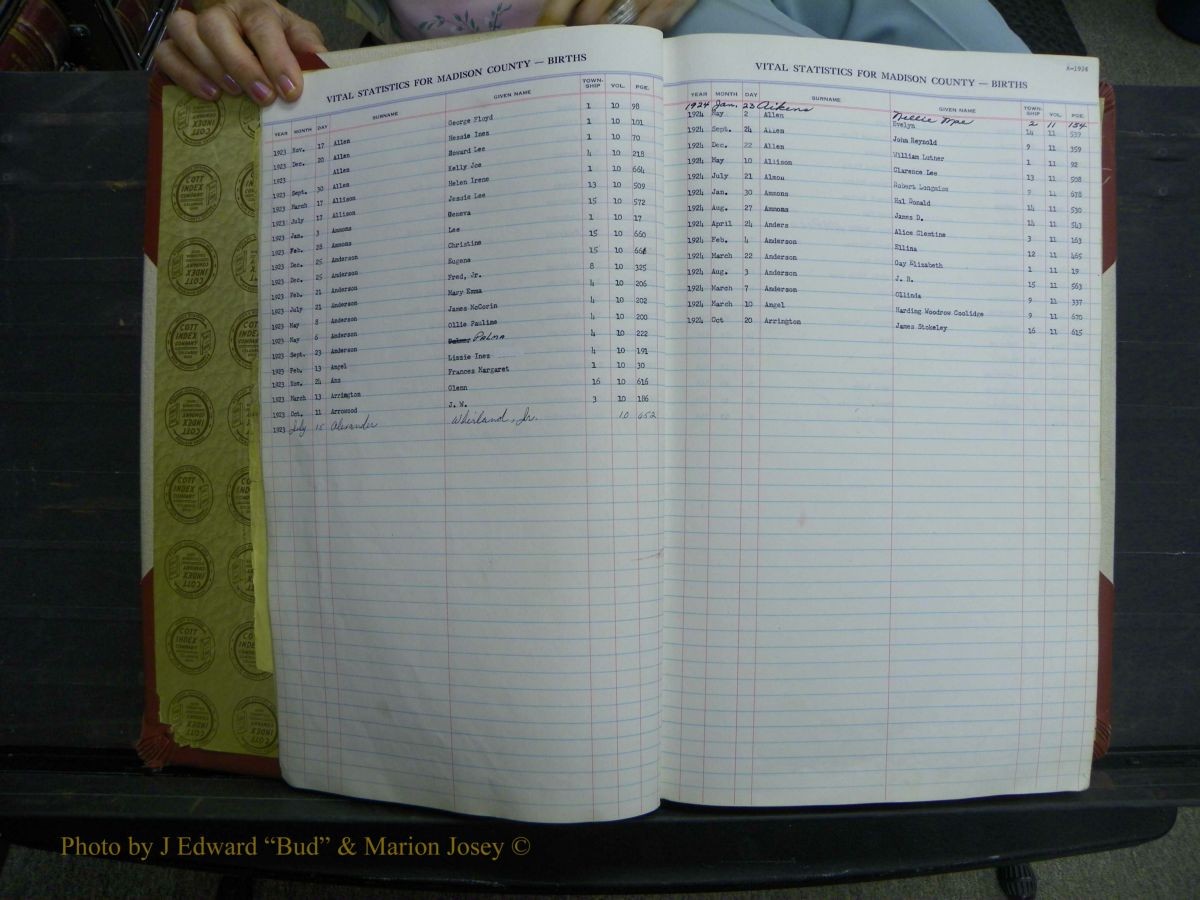 VITAL STATISTICS FOR MADISON COUNTY — BIRTHS
YEAR MONTH DAY SURNAME GIVEN NAME TOWN-SHIP VOL. PGE.
1923 Nov. 17 Allen George Floyd 1 10 98
1923 Dec. 20 Allen Hessie Ines 1 10 101
1923 Allen Howard Lee 1 10 70
1923 Sept. 30 Allen Kelly Joe 4 10 218
1923 March 17 Allison Helen Irene 1 10 664
1923 July 17 Allison Jessie Lee 13 10 509
1923 Jan. 3 Ammons Geneva 15 10 572
1923 Feb. 28 Ammons Lee 1 10 17
1923 Dec. 25 Anderson Christine 15 10 660
1923 Dec. 25 Anderson Eugena 15 10
1923 Feb. 21 Anderson Fred, Jr. 8 10 325
1923 July 21 Anderson Mary Emma 4 10 206
1923 May 8 Anderson James McCorin 4 10 202
1923 May 6 Anderson Ollie Pauline 4 10 200
1923 Sept. 23 Anderson Palma 4 10 222
1923 Feb. 13 Angel Lizzie Inez 4 10 191
1923 Nov. 24 Ans Frances Margaret 1 10 30
1923 March 13 Arrington Glenn 16 10 616
1923 Oct. 11 Arrowood J. W. 3 10 186
1923 July 15 Alexander Whirland, Jr. 10 652
A-1924
VITAL STATISTICS FOR MADISON COUNTY — BIRTHS
YEAR MONTH DAY SURNAME GIVEN NAME TOWN-SHIP VOL. PGE.
1924 Jan. 23 Aikens Nellie Mae 2 11 184
1924 May 2 Allen Evelyn 14 11 539
1924 Sept. 24 Allen John Reynold 9 11 359
1924 Dec. 22 Allen William Luther 1 11 92
1924 May 10 Allison Clarence Lee 13 11 508
1924 July 21 Almon Robert 11 678
1924 Jan. 30 Ammons Hal Donald 14 11 530
1924 Aug. 27 Ammons James D. 14 11 543
1924 April 24 Anders Alice Clestine 3 11 163
1924 Feb. 4 Anderson Ellina 12 11 465
1924 March 22 Anderson Gay Elizabeth 1 11 19
1924 Aug. 3 Anderson J. R. 15 11 563
1924 March 7 Anderson Ollinda 9 11 337
1924 March 10 Angel Harding Woodrow Coolidge 9 11 670
1924 Oct 20 Arrington James Stokeley 16 11 615
COTT INDEX COMPANY
Photo by J Edward “Bud” & Marion Josey ©